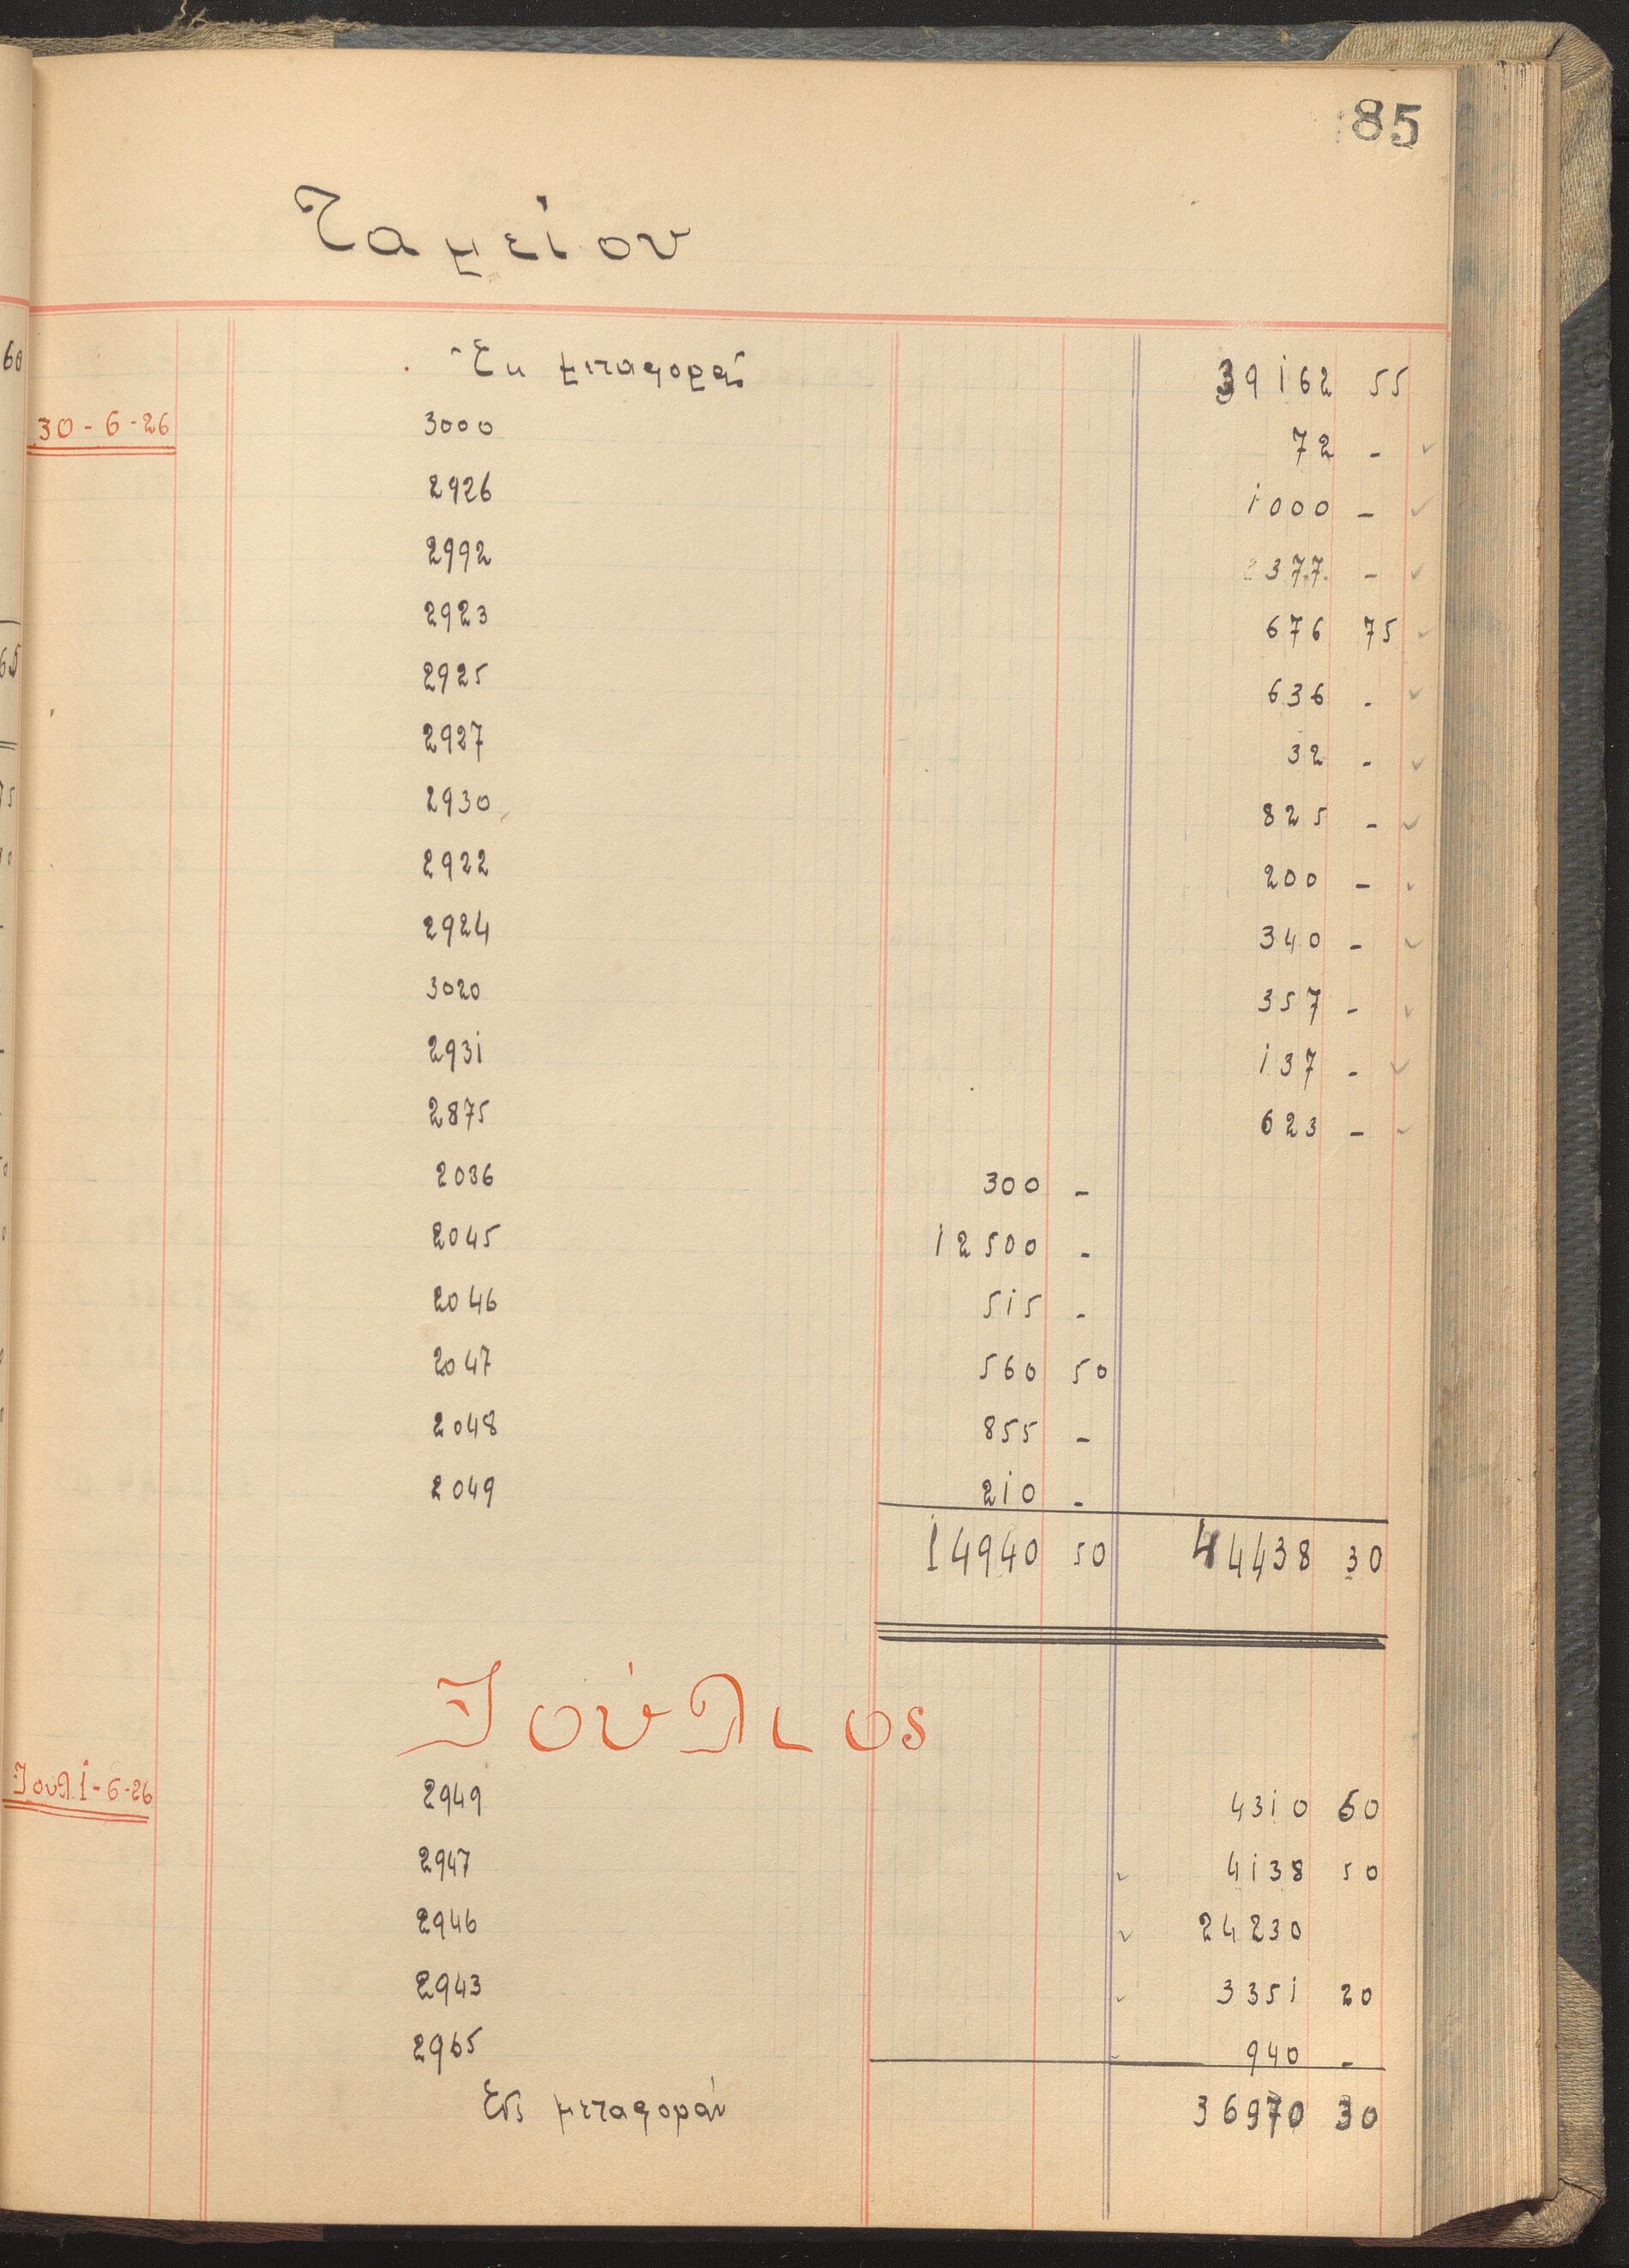 85
Ταμείου
Ἐκ μεταφορᾶς 39162 55
30-6-26 3000 72 -
2926 1000 -
2992 377 -
2923 676 75
2925 636 -
2927 32 -
2930 825 -
2922 200 -
2924 340 -
3020 357 -
2931 137 -
2875 623 -
2036 300 -
2045 12500 -
2046 515 -
2047 560 50
2048 855 -
2049 210 -
14940 50 44438 30
Ἰούλιος
Ἰουλ 1-6-26 2949 4310 60
2947 4138 50
2946 24230
2943 3351 20
2965 940 -
Εἰς μεταφοράν 36970 30